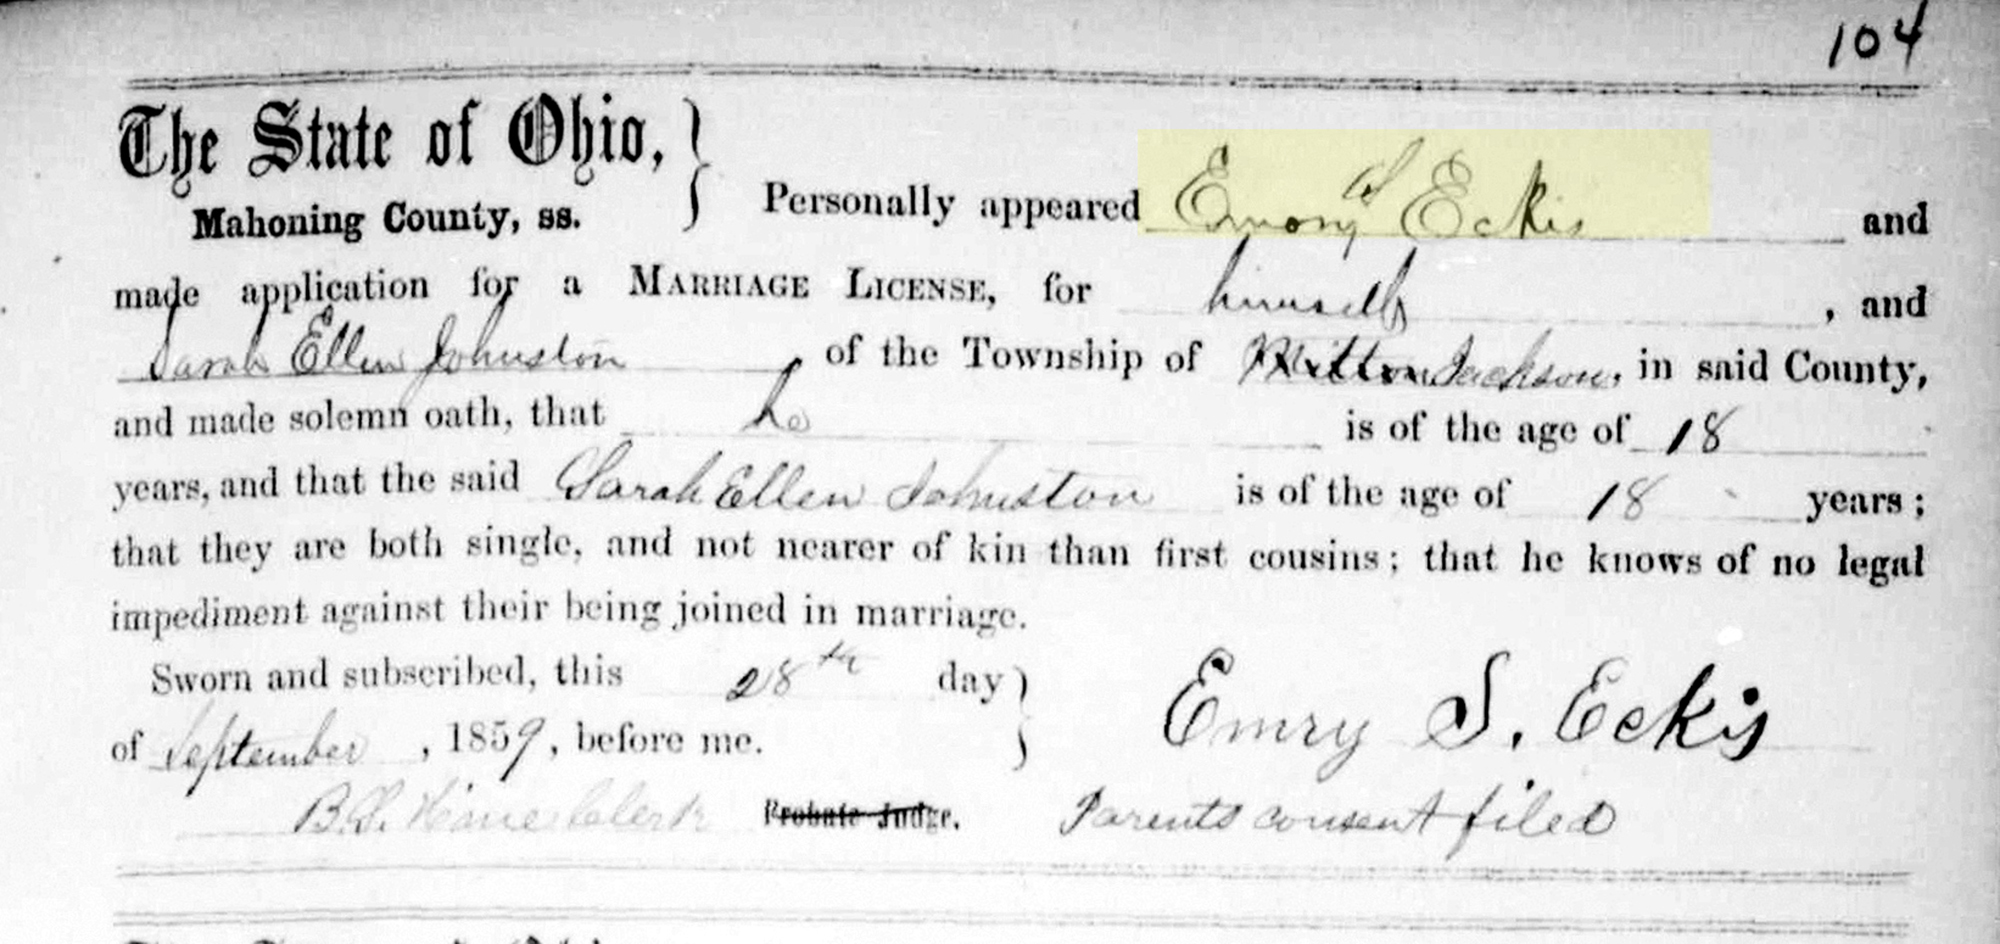 104
The State of Ohio,
Mahoning County, ss. } Personally appeared Emory S Eckis and
made application for a MARRIAGE LICENSE, for himself, and
Sarah Ellen Johnston, of the Township of Milton Jackson, in said County,
and made solemn oath, that he is of the age of 18
years, and that the said Sarah Ellen Johnston is of the age of 18 years;
that they are both single, and not nearer of kin than first cousins; that he knows of no legal
impediment against their being joined in marriage.
Sworn and subscribed, this 28th day }
of September, 1859, before me. Emry S. Eckis
B.S. Clerk Probate Judge. Parents consent filed